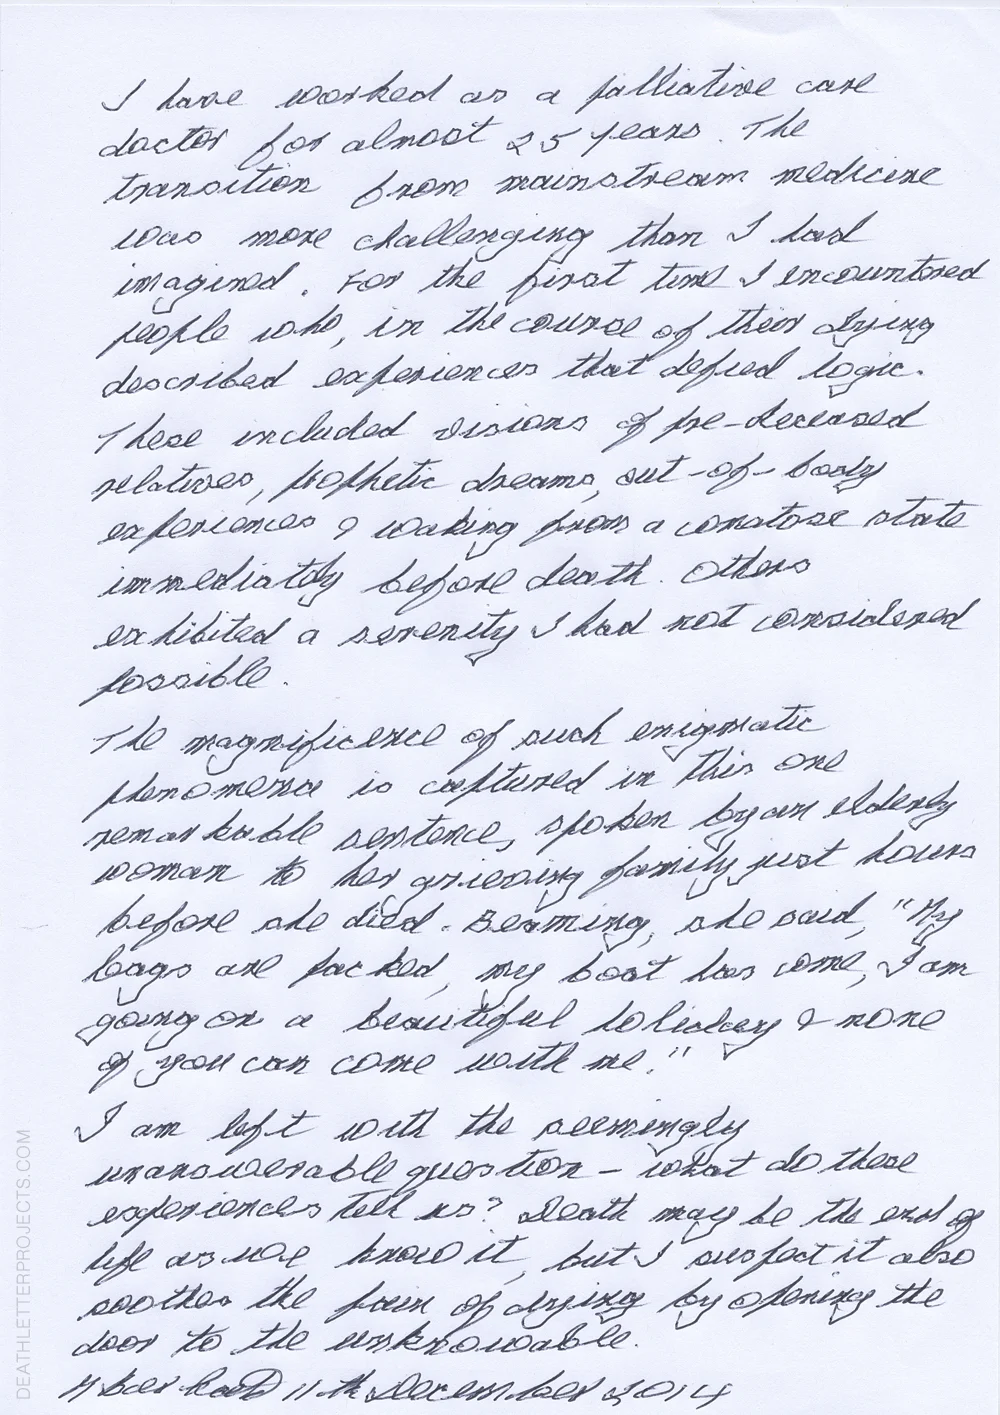 I have worked as a palliative care
doctor for almost 25 years. The
transition from mainstream medicine
was more challenging than I had
imagined. For the first time I encountered
people who, in the course of their dying
described experiences that defied logic.
These included visions of pre-deceased
relatives, prophetic dreams, out-of-body
experiences & waking from a comatose state
immediately before death. Others
exhibited a serenity I had not considered
possible.
The magnificence of such enigmatic
phenomena is captured in this one
remarkable sentence, spoken by an elderly
woman to her grieving family just hours
before she died. Beaming, she said, "My
bags are packed, my boat has come, I am
going on a beautiful holiday & none
of you can come with me."
I am left with the seemingly
unanswerable question - what do these
experiences tell us? Death may be the end of
life as we know it, but I suspect it also
soothes the pain of dying by opening the
door to the unknowable.
11th December 2014
DEATHLETTERPROJECTS.COM